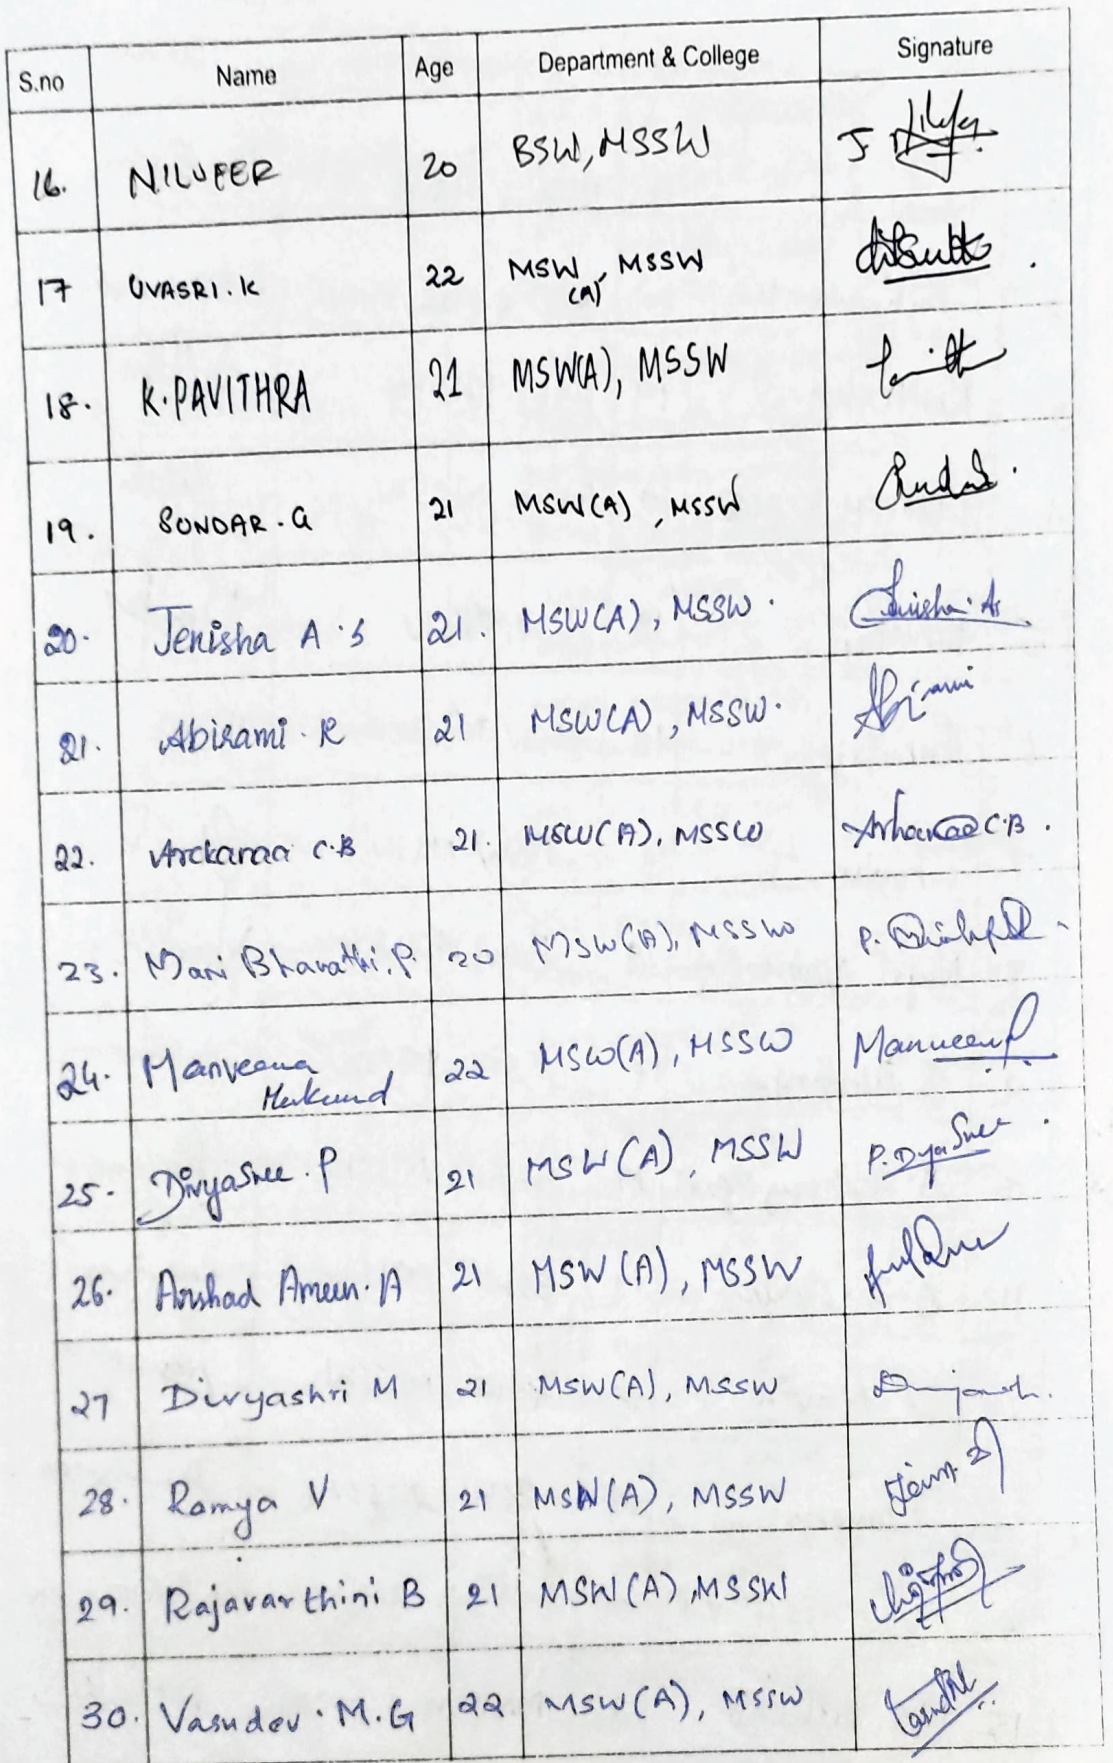 S.no Name Age Department & College Signature
16. NILUFER 20 BSW, MSSW J
17 UVASRI.K 22 MSW (A), MSSW
18. K.PAVITHRA 21 MSW(A), MSSW
19. SUNDAR.G 21 MSW(A), MSSW
20. Jenisha A.S 21. MSW(A), MSSW. Jenisha As
21. Abirami.R 21 MSW(A), MSSW. Abirami
22. Archanaa C.B 21. MSW(A), MSSW Archanaa C.B.
23. Mani Bharathi.P. 20 MSW(A), MSSW P.
24. Manveena 22 MSW(A), MSSW
Mukund
25. DivyaSree.P 21 MSW(A), MSSW P.DivyaSree
26. Arshad Ameen.A 21 MSW(A), MSSW
27 Divyashri M 21 MSW(A), MSSW
28. Ramya V 21 MSW(A), MSSW
29. Rajavarthini B 21 MSW(A), MSSW
30. Vasudev.M.G 22 MSW(A), MSSW